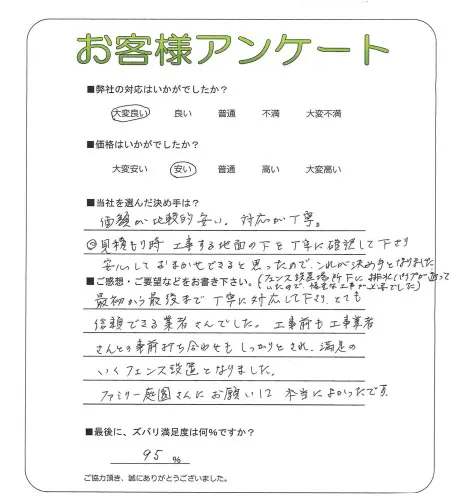 お客様アンケート
■弊社の対応はいかがでしたか？
大変良い 良い 普通 不満 大変不満
■価格はいかがでしたか？
大変安い 安い 普通 高い 大変高い
■当社を選んだ決め手は？
価額が比較的安い、対応が丁寧。
◎見積もり時 工事する地面の下を丁寧に確認して下さり
安心しておまかせできると思ったので、これが決め手となりました
■ご感想・ご要望などをお書き下さい。
(フェンス設置場所下に排水パイプが通って
いたので、な工事が必要でした)
最初から最後まで丁寧に対応して下さり、とても
信頼できる業者さんでした。工事前も工事業者
さんとの事前打ち合わせもしっかりとされ、満足の
いくフェンス設置となりました。
ファミリー庭園さんにお願いして本当によかったです。
■最後に、ズバリ満足度は何％ですか？
95 ％
ご協力頂き、誠にありがとうございました。